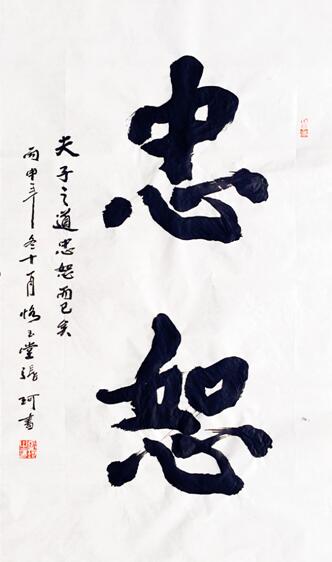 忠恕
夫子之道忠恕而已矣
丙申年冬十月悟玉堂張珂書